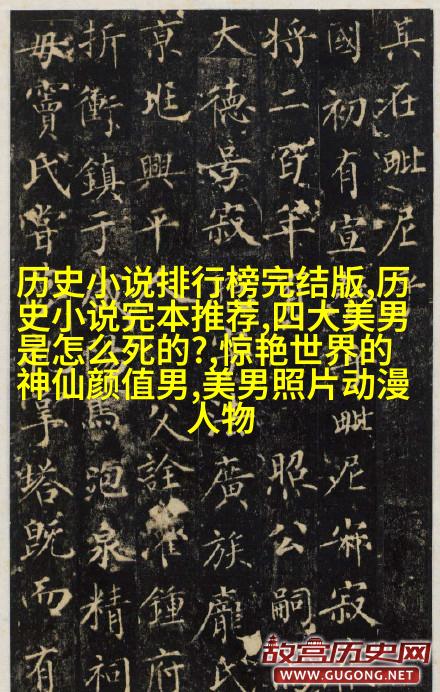 其在毗尼
國初有宣
毗尼
寂
將二百年
照公嗣
大德号寂
廣族龐氏
京兆興平
父詮灌鍾府
折衝鎮于
馬泡泉精祠
毋竇氏嘗
掌塔既而有
历史小说排行榜完结版,历
史小说完本推荐,四大美男
是怎么死的?,惊艳世界的
神仙颜值男,美男照片动漫
人物
故宫历史网
WWW.GUGONG.NET